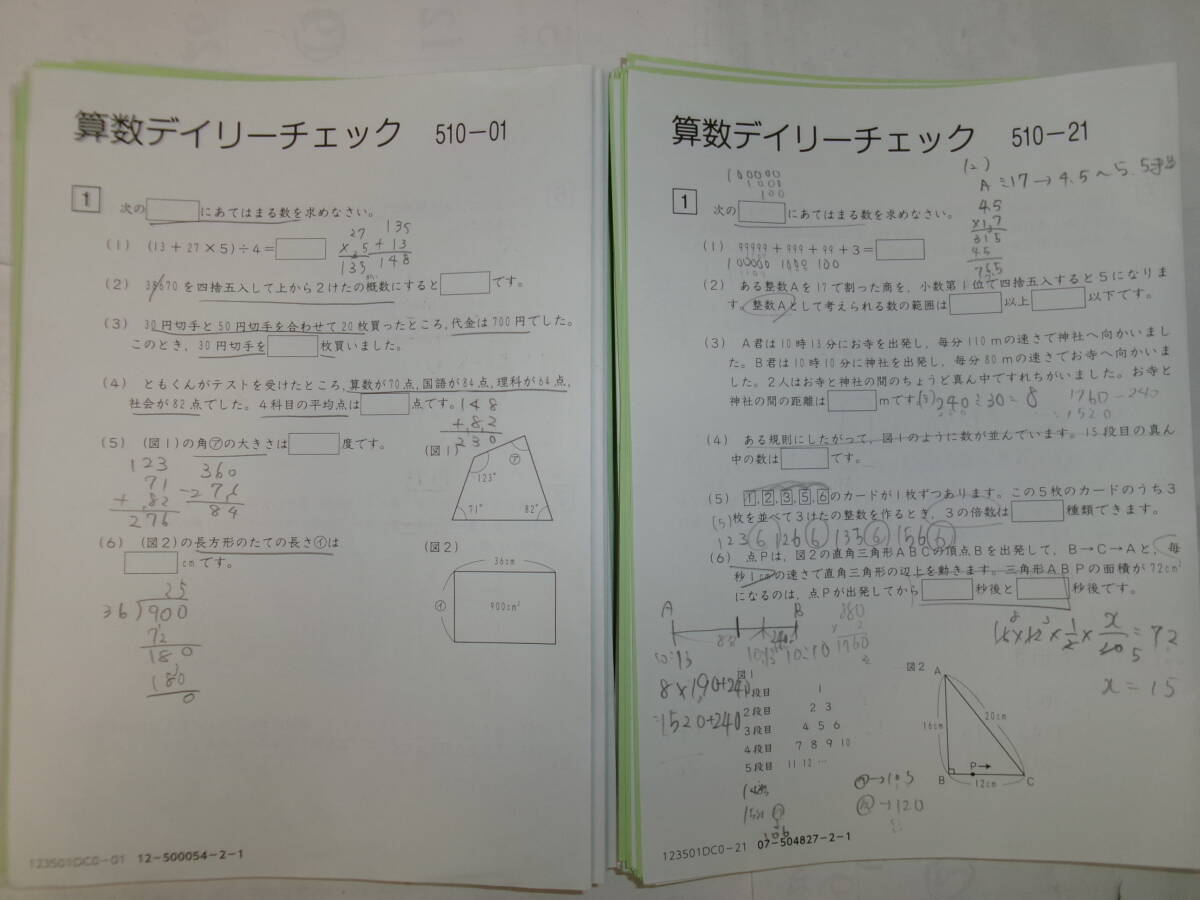 算数デイリーチェック 510-01
1 次の にあてはまる数を求めなさい。
(1) (13+27×5)÷4=
27
×25
135
135
+13
148
(2) 38670を四捨五入して上から2けたの概数にすると です。
(3) 30円切手と50円切手を合わせて20枚買ったところ,代金は700円でした。
このとき,30円切手を 枚買いました。
(4) ともくんがテストを受けたところ,算数が70点,国語が84点,理科が64点,
社会が82点でした。4科目の平均点は 点です。
148
+82
230
(5) (図1)の角㋐の大きさは 度です。
123
71
+82
276
360
-276
84
(図1)
㋐
123°
71°
82°
(6) (図2)の長方形のたての長さ㋑は
cmです。
25
36)900
72
180
180
0
(図2)
36cm
㋑
900cm²
123501DC0-01 12-500054-2-1
算数デイリーチェック 510-21
100000
1000
100
(2)
A÷17→4.5~5.5
4.5
×17
315
45
765
1 次の にあてはまる数を求めなさい。
(1) 99999+999+99+3=
100000 1000 100
(2) ある整数Aを17で割った商を,小数第1位で四捨五入すると5になりま
す。整数Aとして考えられる数の範囲は 以上 以下です。
(3) A君は10時13分にお寺を出発し,毎分110mの速さで神社へ向かいまし
た。B君は10時10分に神社を出発し,毎分80mの速さでお寺へ向かいま
した。2人はお寺と神社の間のちょうど真ん中ですれちがいました。お寺と
神社の間の距離は mです。
(3)240÷30=8
1760-240
=1520
(4) ある規則にしたがって,図1のように数が並んでいます。15段目の真ん
中の数は です。
(5) 1,2,3,5,6のカードが1枚ずつあります。この5枚のカードのうち3
枚を並べて3けたの整数を作るとき,3の倍数は 種類できます。
(5)
123 6 126 6 135 6 156 6
(6) 点Pは,図2の直角三角形ABCの頂点Bを出発して,B→C→Aと,毎
秒1cmの速さで直角三角形の辺上を動きます。三角形ABPの面積が72cm²
になるのは,点Pが出発してから 秒後と 秒後です。
A B
880
× 2
1760
880
240
10:13
10:13
10:10
8×190+240
=1520+240
x=15
図1
1段目 1
2段目 2 3
3段目 4 5 6
4段目 7 8 9 10
5段目 11 12 …
→105
→120
106
図2
A
16cm
20cm
P→
B
12cm
C
123501DC0-21 07-504827-2-1